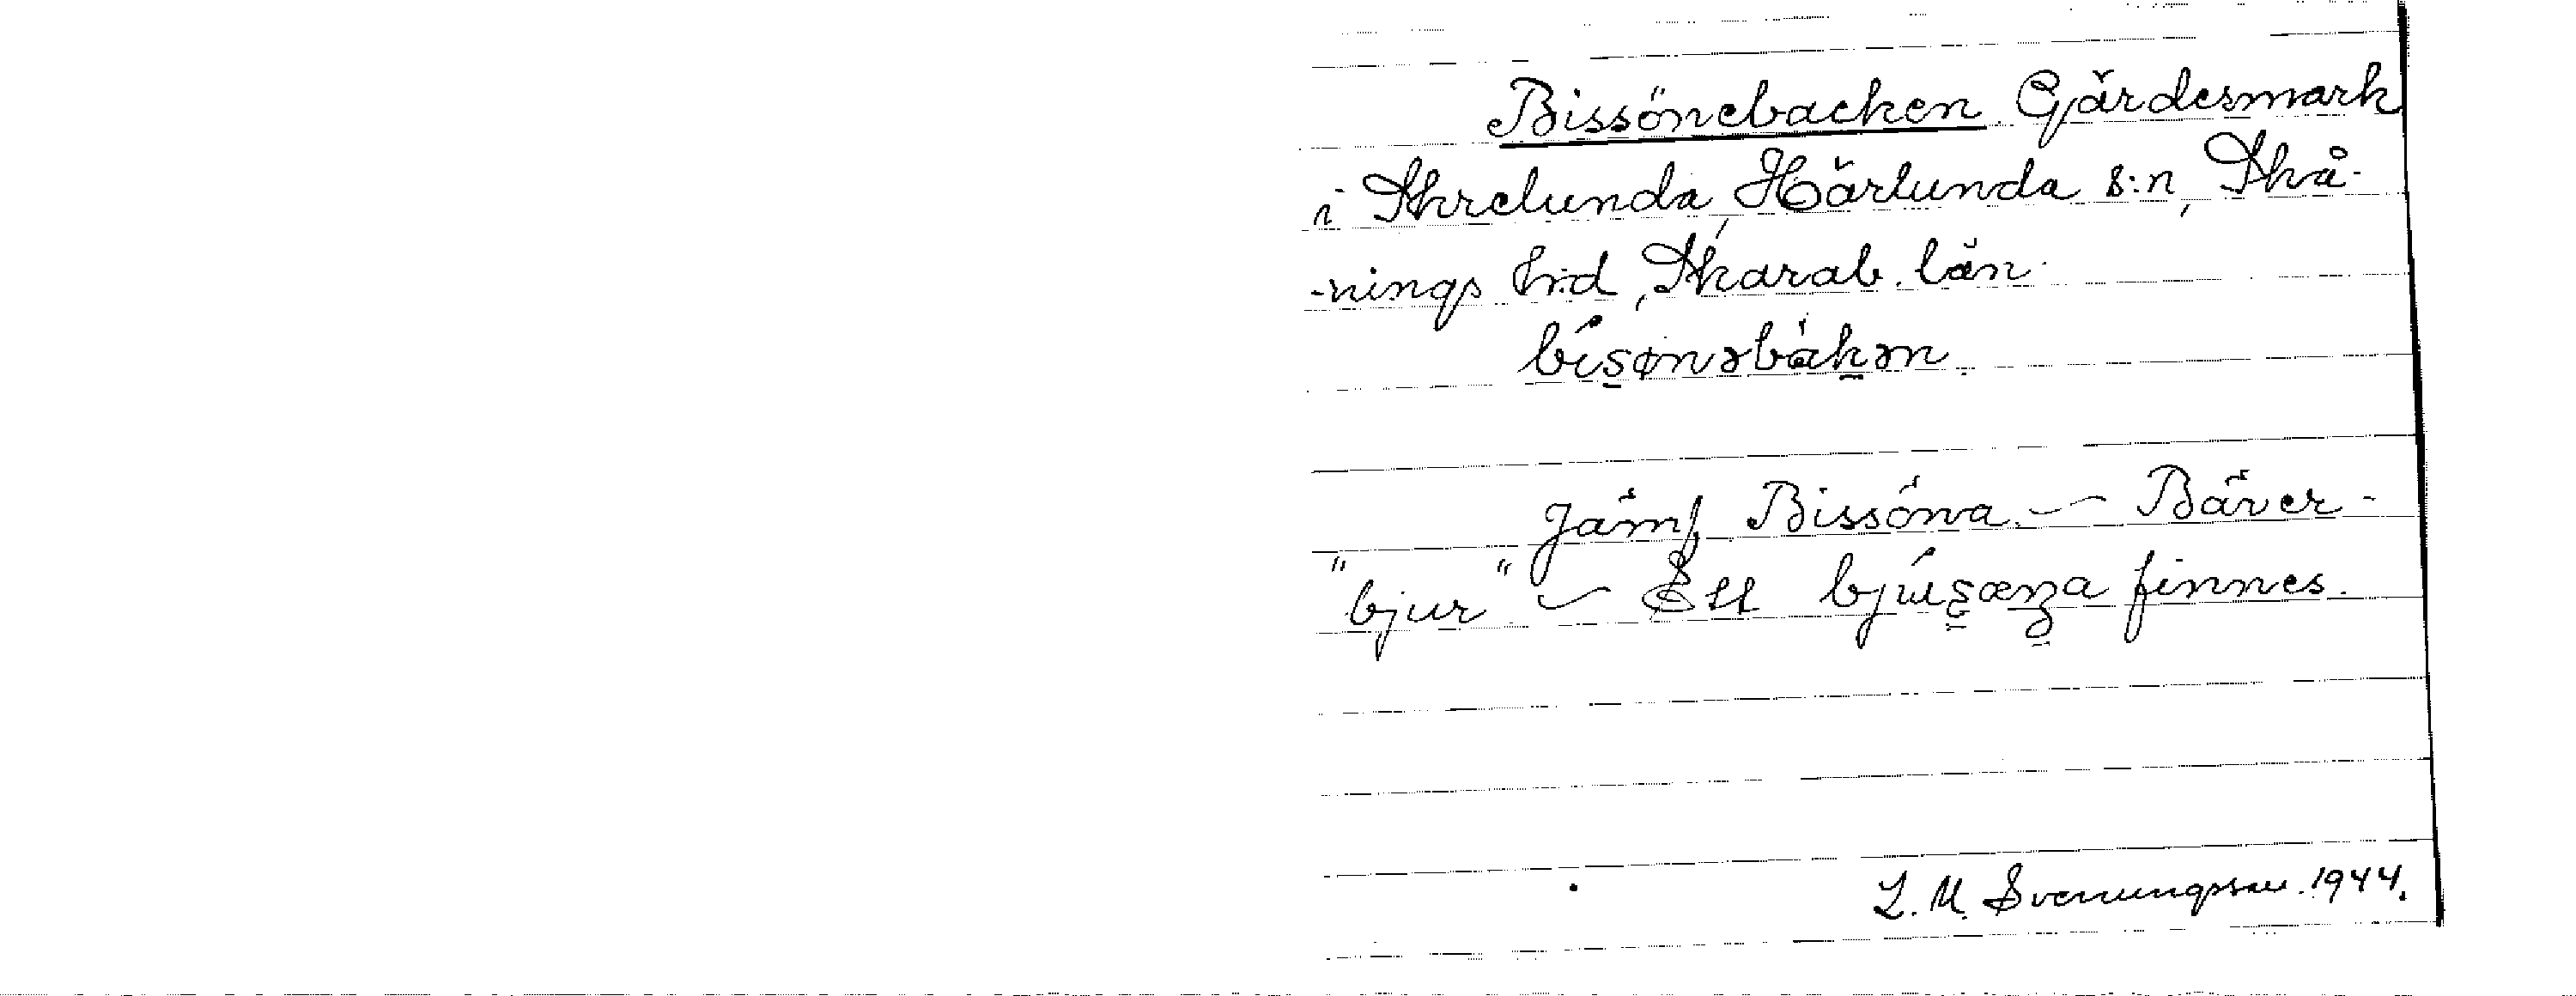 Bissönebacken. Gärdesmark
i Skrelunda, Härlunda s:n, Skå-
-nings hrd, Skarab. län.
bísønəbàkən.
Jämf. Bissöna. – Bäver –
"bjur" – Ett finnes.
L. M. Svenungsson. 1944.